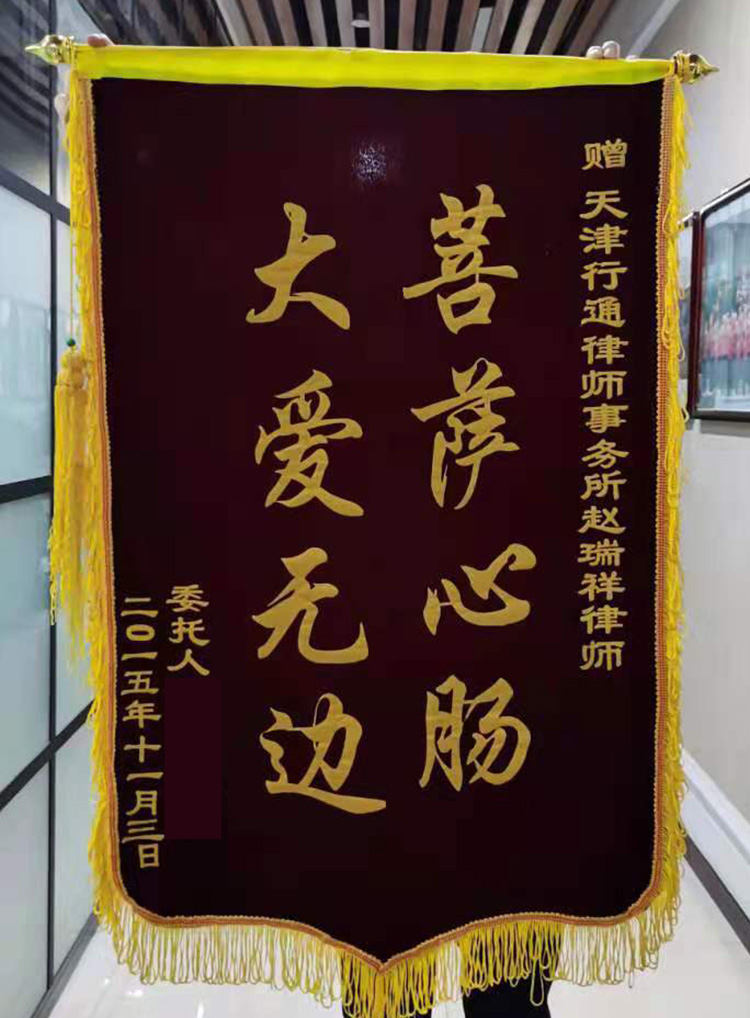 赠 天津行通律师事务所赵瑞祥律师
菩萨心肠
大爱无边
委托人
二〇一五年十一月三日